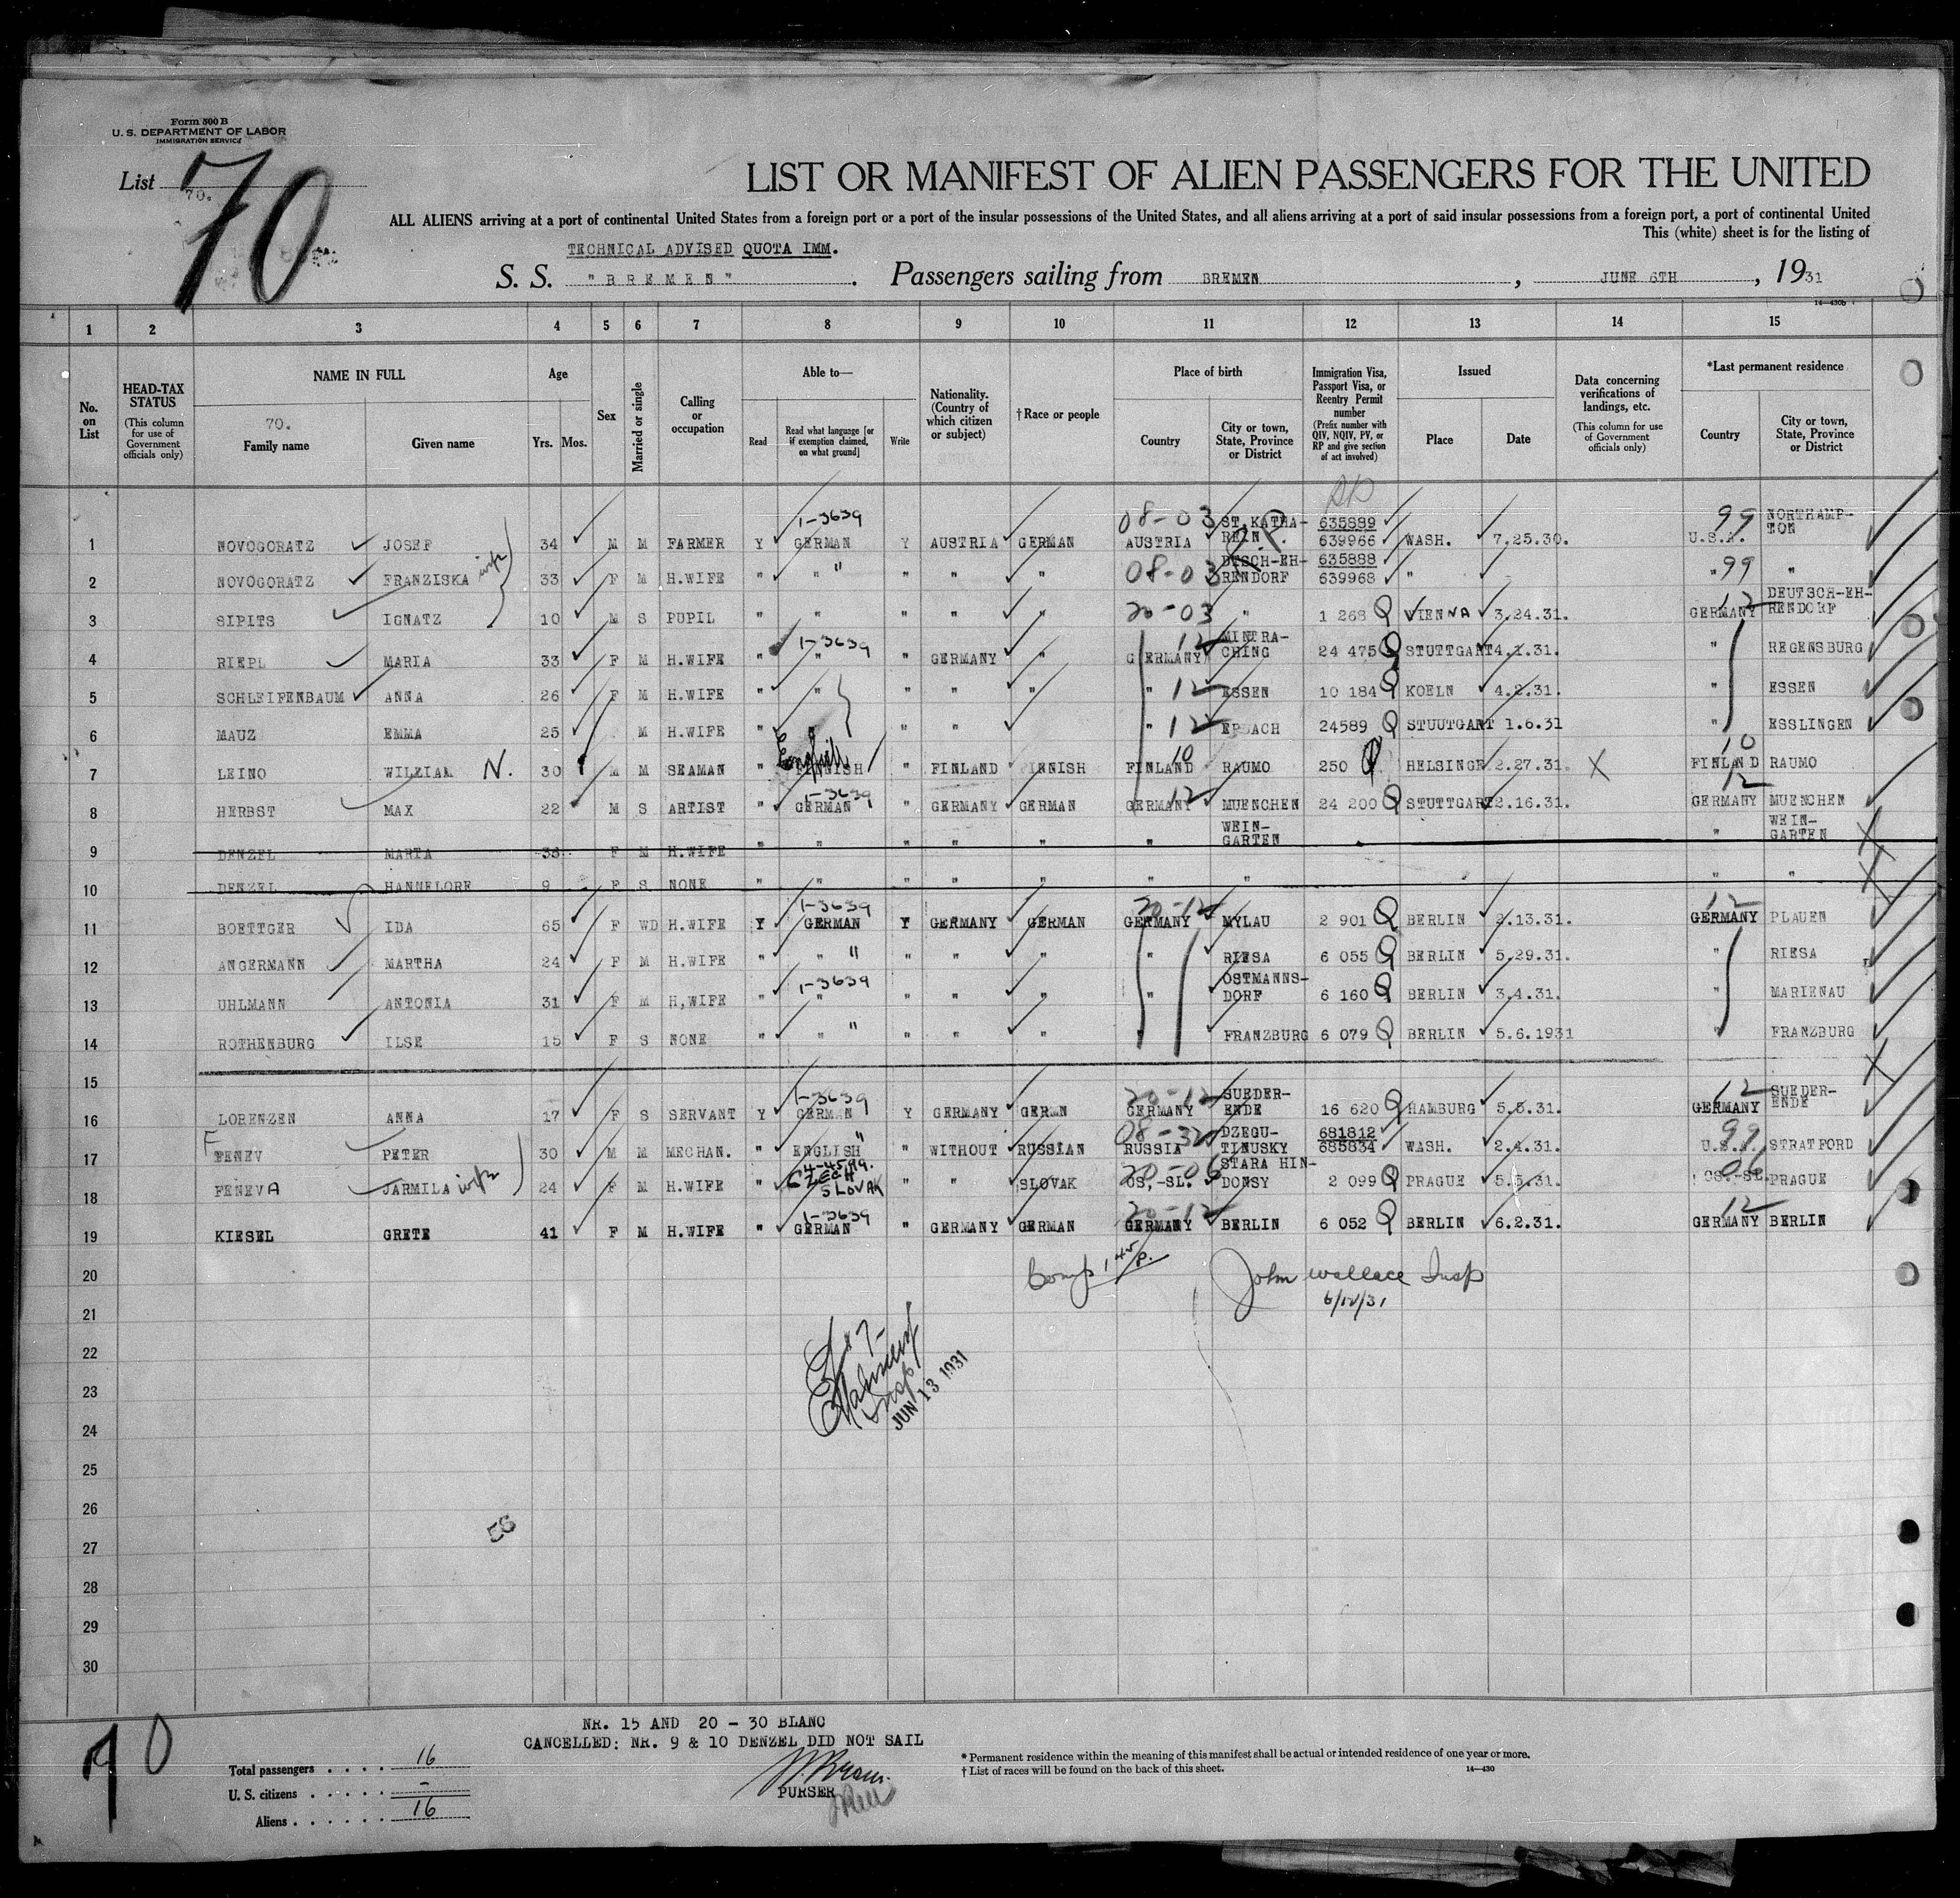 Form 500 B
U. S. DEPARTMENT OF LABOR
IMMIGRATION SERVICE
List 70.
70
LIST OR MANIFEST OF ALIEN PASSENGERS FOR THE UNITED
ALL ALIENS arriving at a port of continental United States from a foreign port or a port of the insular possessions of the United States, and all aliens arriving at a port of said insular possessions from a foreign port, a port of continental United
This (white) sheet is for the listing of
TECHNICAL ADVISED QUOTA IMM.
S. S. "BREMEN". Passengers sailing from BREMEN, JUNE 6TH, 1931
14—430b
1 2 3 4 5 6 7 8 9 10 11 12 13 14 15
No. on List
HEAD-TAX STATUS (This column for use of Government officials only)
NAME IN FULL
70.
Family name Given name
Age Yrs. Mos.
Sex
Married or single
Calling or occupation
Able to—
Read Read what language [or if exemption claimed, on what ground] Write
Nationality. (Country of which citizen or subject)
† Race or people
Place of birth
Country City or town, State, Province or District
Immigration Visa, Passport Visa, or Reentry Permit number (Prefix number with QIV, NQIV, PV, or RP and give section of act involved)
Issued
Place Date
Data concerning verifications of landings, etc. (This column for use of Government officials only)
*Last permanent residence
Country City or town, State, Province or District
1 NOVOGORATZ JOSEF 34 M M FARMER Y 1-3639 GERMAN Y AUSTRIA GERMAN 08-03 AUSTRIA ST.KATHA-REIN 635889 639966 WASH. 7.25.30. 99 U.S.A. NORTHAMP-TON
2 NOVOGORATZ FRANZISKA wife 33 F M H.WIFE " " " " " " 08-03 DTSCH-EH-RENDORF 635888 639968 " " 99 "
3 SIPITS IGNATZ 10 M S PUPIL " " " " " 20-03 " 1 268 Q VIENNA 3.24.31. 12 GERMANY DEUTSCH-EH-RENDORF
4 RIEPL MARIA 33 F M H.WIFE " 1-3639 " " GERMANY " 12 GERMANY MINTRA-CHING 24 475 Q STUTTGART 4.1.31. " REGENSBURG
5 SCHLEIFENBAUM ANNA 26 F M H.WIFE " " " " " " 12 ESSEN 10 184 Q KOELN 4.2.31. " ESSEN
6 MAUZ EMMA 25 M H.WIFE " " " " " 12 24589 Q STUUTGART 1.6.31 " ESSLINGEN
7 LEINO WILZIAM N. 30 M M SEAMAN " English FINNISH " FINLAND FINNISH 10 FINLAND RAUMO 250 Q HELSINGF 2.27.31. X 10 FINLAND RAUMO
8 HERBST MAX 22 M S ARTIST " 1-3639 GERMAN " GERMANY GERMAN 12 GERMANY MUENCHEN 24 200 Q STUTTGART 2.16.31. 12 GERMANY MUENCHEN
9 DENZEL MARTA 38 F M H.WIFE " " " " " " WEIN-GARTEN " WEIN-GARTEN
10 DENZEL HANNELORE 9 F S NONE " " " " " " " " "
11 BOETTGER IDA 65 F WD H.WIFE Y 1-3639 GERMAN Y GERMANY GERMAN 20-12 GERMANY MYLAU 2 901 Q BERLIN 2.13.31. 12 GERMANY PLAUEN
12 ANGERMANN MARTHA 24 F M H.WIFE " " " " " " " RIESA 6 055 Q BERLIN 5.29.31. " RIESA
13 UHLMANN ANTONIA 31 F M H,WIFE " 1-3639 " " " " " OSTMANNS-DORF 6 160 Q BERLIN 3.4.31. " MARIENAU
14 ROTHENBURG ILSE 15 F S NONE " " " " " " " FRANZBURG 6 079 Q BERLIN 5.6.1931 " FRANZBURG
15
16 LORENZEN ANNA 17 F S SERVANT Y 1-3639 GERMAN Y GERMANY GERMN 20-12 GERMANY SUEDER-ENDE 16 620 Q HAMBURG 5.5.31. 12 GERMANY SUEDER-ENDE
17 FENEV PETER 30 M M MECHAN. " ENGLISH " " WITHOUT RUSSIAN 08-32 RUSSIA DZEGU-TINUSKY 681812 685834 WASH. 2.4.31. 99 U.S.A. STRATFORD
18 FENEVA JARMILA wife 24 F M H.WIFE " 4-4599. CZECH SLOVAK " " SLOVAK 20-06 CS,-SL. STARA HIN-DONSY 2 099 Q PRAGUE 5.5.31. 06 CS.-SL. PRAGUE
19 KIESEL GRETE 41 F M H.WIFE " 1-3639 GERMAN " GERMANY GERMAN 20-12 GERMANY BERLIN 6 052 Q BERLIN 6.2.31. 12 GERMANY BERLIN
20 John Wallace Insp
6/12/31
21
22
23 JUN 13 1931
24
25
26
27
28
29
30
NR. 15 AND 20 - 30 BLANC
CANCELLED: NR. 9 & 10 DENZEL DID NOT SAIL
70
Total passengers 16
U. S. citizens -
Aliens 16
PURSER
* Permanent residence within the meaning of this manifest shall be actual or intended residence of one year or more.
† List of races will be found on the back of this sheet.
14—430